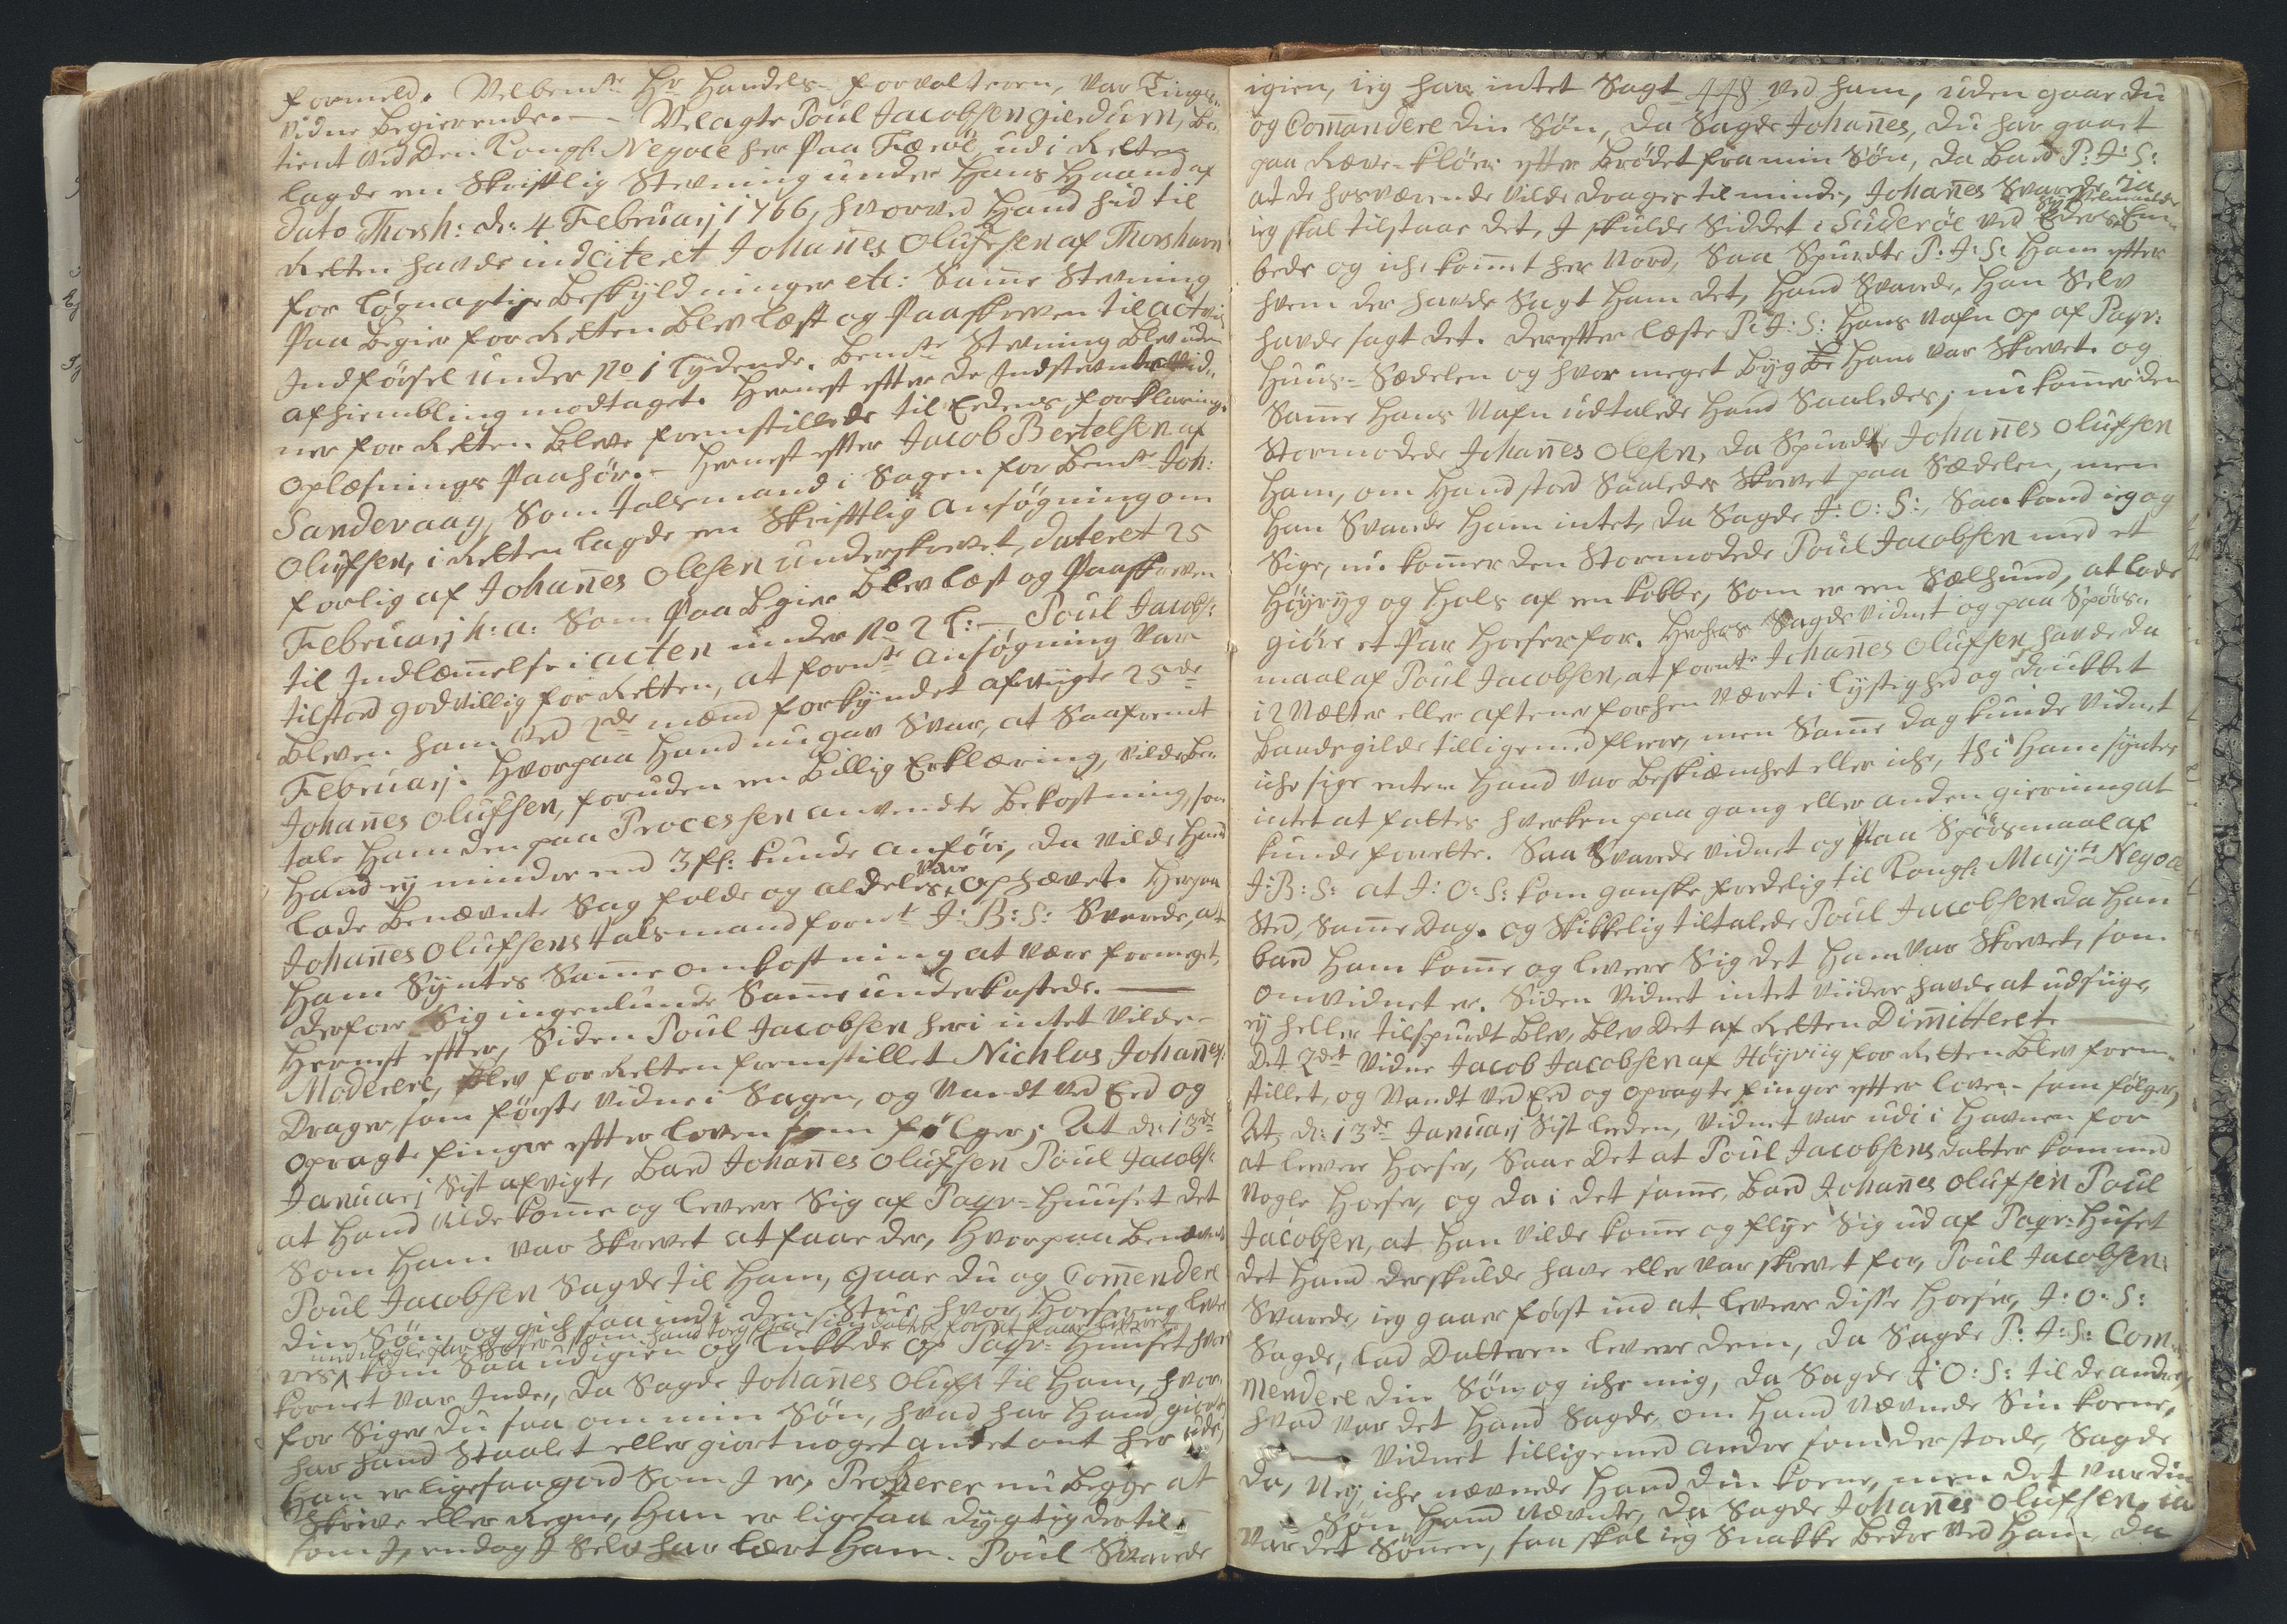 formeld. Velbemte Hr Handels-forvalteren, var Tings-
vidne begierende. — Velagte Poul Jacobsen gierdum, be-
tient ved Den Kongl: Negoce her paa Færöe, udi Retten
lagde en Skriftlig Stevning under Hans Haand af
dato Thorsh: d: 4 Februarj 1766, hvorved Hand hid til
Retten havde indciteret Johañes Olufsen af Thorshavn
for løgnagtige Beskyldninger etc: Sam̄e Stevning
paa begier for Retten blev læst og Paaskreven til acts
Indførsel under No 1 lydende. bemte Stevning blev uden
afhiembling modtaget. Hernest efter de Indstevnte Vid-
ner for Retten bleve fremstillede til Eedens forklarings
oplæsnings Paahør. — Hernest efter Jacob Bertelsen af
Sandevaag, Som talsmand i Sagen for bemte Joh:
Olufsen, i Retten lagde en Skrifttlig ansøgning om
forlig af Johañes Olesen underskrevet, dateret 25
Februarj h: a: Som paa begier blev læst og Paaskreven
til Indlæm̄else i acten under No 2 l: — Poul Jacobs:
tilstoed godvillig for Retten, at formte ansøgning var
bleven ham ved 2de mænd forkyndet afvigte 25de
Februarj. Hvorpaa Hand nu gav Svar, at Saafremt
Johañes Olufsen, foruden en billig Erklæring, vilde be-
tale Ham den paa Processen anvendte bekostning, som
Hand ej mindre end 3 fl: kunde anføre, da vilde Hand
lade benævnte Sag falde og aldeles være ophævet. Herpaa
Johañes Olufsens talsmand formte J: B: S: Svarede, at
Ham Syntes Sam̄e omkostning at være formeget,
derfore Sig ingenlunde Sam̄e underkastede. —
Hernest efter, Siden Poul Jacobsen heri intet vilde
Moderere, blev for Retten fremstillet Nichlas Johañes:
Drager, som første vidne i Sagen, og vandt ved Eed og
opragte finger efter loven som følger; At d: 13de
Januarj Sist afvigt, bad Johañes Olufsen Poul Jacobs:
at Hand vilde kom̄e og levere Sig af Payr-Huuset det
Som Ham var Skrevet at faae der, Hvorpaa benævnte
Poul Jacobsen Sagde til Ham, gaar du og Com̄endere
din Søn, og gich saa ind i den Stue hvor Hoeserne leve-
res, med nogle par Hoeser som hand tog fra sin datter for at faae leveret kom Saa ud igien og lukkede op Payr-Huuset hvor
kornet var Inde, da Sagde Johañes Olufs: til Ham, hvor-
for Siger du saa om min Søn, hvad har Hand giort
har hand Staalet eller giort noget andet ont her ude,
Han er ligesaagod Som I er, Proberer nu begge at
Skrive eller Regne, Han er ligesaa dygtig dertil
som I, endog I Selv har lært Ham. Poul Svarede
igien, jeg har intet Sagt 448 ved ham, uden gaar du
og Com̄andere din Søn, da Sagde Johañes, du har gaaet
paa Ræve-kløer efter brødet fra min Søn, da bad P: J: S:
at de hosværende vilde drages til minde, Johañes Svarede ja
jeg skal tilstaae det, I skulde Siddet i Suderöe ved Eders Em-
bede og iche kom̄et her Nord, Saa Spurdte P: J: S: Ham efter
hvem der havde Sagt Ham det, Hand Svarede, Han Selv
havde sagt det. derefter læste P: J: S: Hans Nafn op af Payr:
Huus-Sædelen og hvor meget byg Ham var Skrevet. og
Sam̄e Hans Nafn udtalede Hand Saaledes; nu kom̄er den
Stormodede Johañes Olesen, da Spurdte Johañes Olufsen
Ham, om Hand stod Saaledes Skrevet paa Sædelen, men
Han Svarede Ham intet, da Sagde J: O: S:, Saa kand jeg og
Sige, nu kom̄er den Stormodede Poul Jacobsen med et
Høyryg og Hals af en kobbe, Som er en Sælhund, at lade
giöre et Par Hoeser for. Hvorhos Sagde vidnet og paa Spörs-
maal af Poul Jacobsen, at formte Johañes Olufsen havde da
i 2 Nætter eller aftener forhen været i lystighed og druckket
baadsgilde tilligemed fleere, men Sam̄e dag kunde vidnet
iche sige enten Hand var beskiænchet eller iche, thi Ham syntes
intet at fattes hverken paa gang eller anden gierning at
kunde forrette. Saa Svarede vidnet og paa Spörsmaal af
J: B: S: at J: O: S: kom ganske fredelig til Kongl: Mayts Negoce
Sted, Sam̄e Dag. og Skikkelig tiltalede Poul Jacobsen da Han
bad Ham kom̄e og levere Sig det Ham var Skrevet, som
omvidnet er. Siden vidnet intet viidere havde at udsiige,
ej heller tilspurdt blev, blev det af Retten Dimitteret. —
Det 2det vidne Jacob Jacobsen af Höyviig for Retten blev frem-
stillet, og vandt ved Eed og opragte finger efter loven som følger,
At d: 13de Januarj Sist leeden, vidnet var udi i Havnen for
at levere Hoeser, Saae Det at Poul Jacobsens datter kom med
Nogle Hoeser, og da i det sam̄e, bad Johañes Olufsen Poul
Jacobsen, at Han vilde kom̄e og flye Sig ud af Payr-Huset
det Hand der skulde have eller var skrevet for, Poul Jacobsen
Svarede, jeg gaaer først ind at levere disse Hoeser, J: O: S:
Sagde, lad Datteren levere dem, da Sagde P: J: S: Com-
mendere din Søn og iche mig, da Sagde J: O: S: til de andre
hvad var det Hand Sagde, om Hand nævnede Sin kone,
— vidnet tilligemed andre som der stoede, Sagde
da, Nej, iche nævnede Hand din kone, men det var din
Søn Hand nævnte, da Sagde Johañes Olufsen, ja
var det Sönnen, saa skal jeg Snakke bedre ved Ham, da